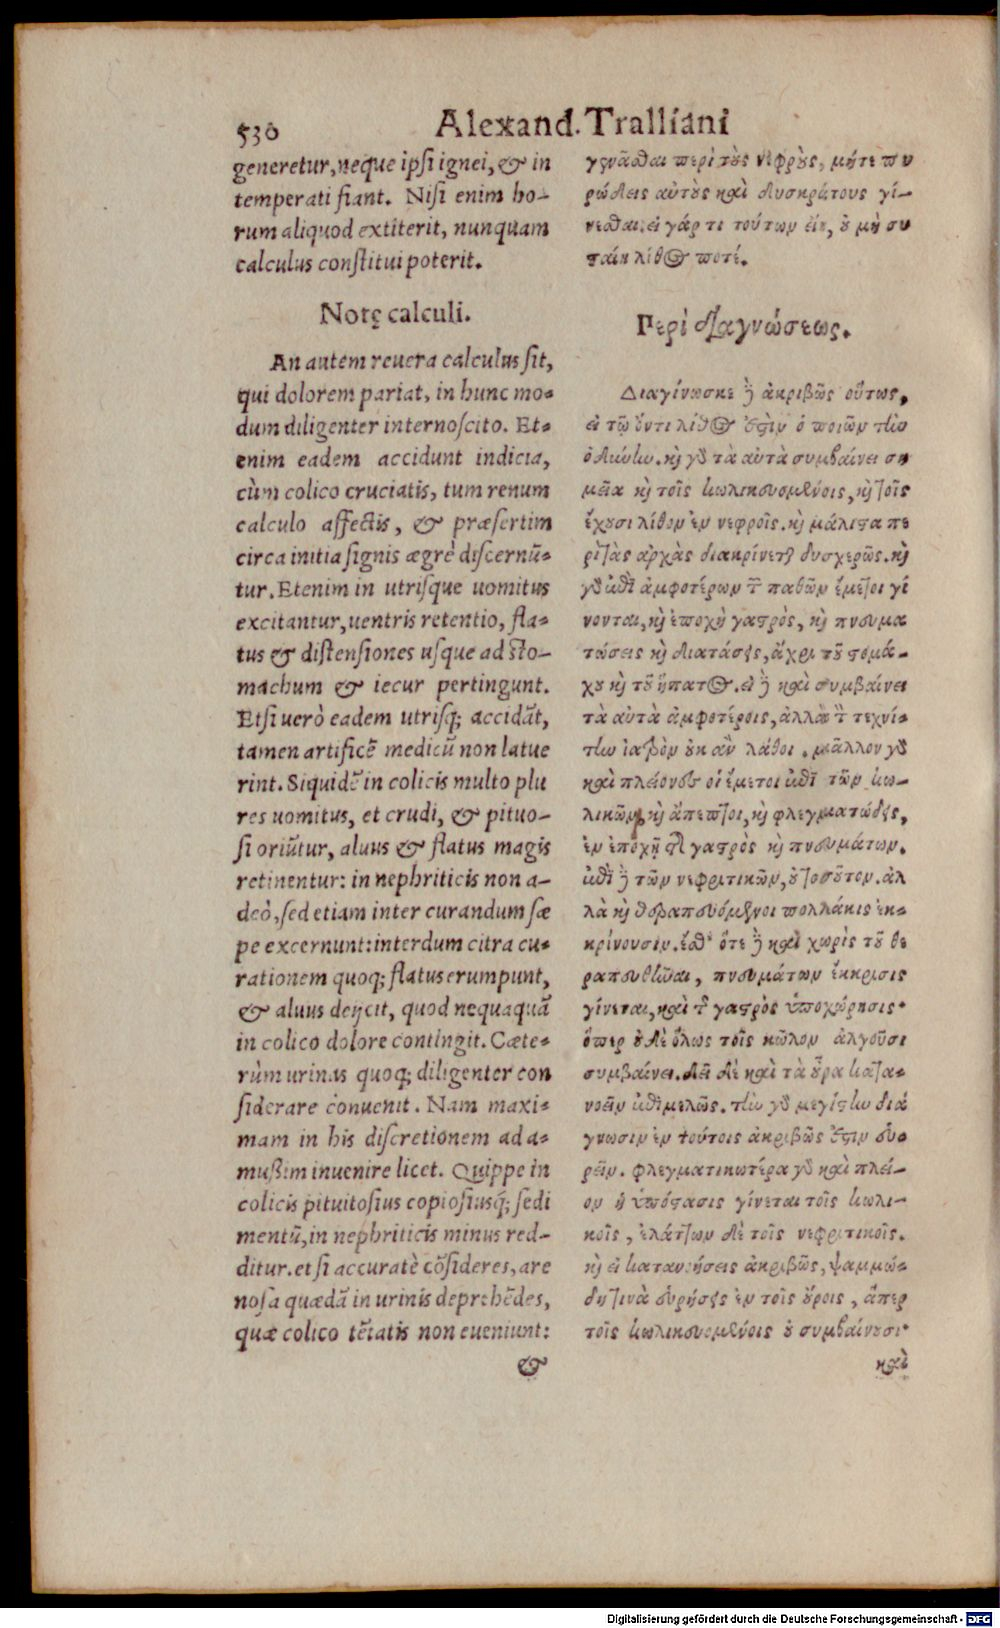 530
Alexand. Tralliani
generetur, neque ipsi ignei, & in
temperati fiant. Nisi enim ho-
rum aliquod extiterit, nunquam
calculus constitui poterit.
Notę calculi.
An autem reuera calculus sit,
qui dolorem pariat, in hunc mo-
dum diligenter internoscito. Et-
enim eadem accidunt indicia,
cùm colico cruciatis, tum renum
calculo affectis, & præsertim
circa initia signis ægrè discernũ-
tur. Etenim in utrisque uomitus
excitantur, uentris retentio, fla-
tus & distensiones usque ad sto-
machum & iecur pertingunt.
Etsi uerò eadem utrisq; accidãt,
tamen artificẽ medicũ non latue
rint. Siquidẽ in colicis multo plu
res uomitus, et crudi, & pituo-
si oriũtur, aluus & flatus magis
retinentur: in nephriticis non a-
deò, sed etiam inter curandum sæ
pe excernunt: interdum citra cu-
rationem quoq; flatus erumpunt,
& aluus deijcit, quod nequaquã
in colico dolore contingit. Cæte-
rùm urinas quoq; diligenter con
siderare conuenit. Nam maxi-
mam in his discretionem ad a-
mußim inuenire licet. Quippe in
colicis pituitosius copiosiusq; sedi
mentũ, in nephriticis minus red-
ditur. et si accuratè cõsideres, are
nosa quædã in urinis deprehẽdes,
quæ colico tẽtatis non eueniunt:
&
γεννᾶσθαι περὶ τοὺς νεφροὺς, μήτε πυ
ρώδεις αὐτοὺς καὶ δυσκράτους γί-
νεσθαι. εἰ γάρ τι τούτων εἴη, οὐ μὴ συ
σταίη λίθος ποτέ.
Περὶ διαγνώσεως.
Διαγίνωσκε δὲ ἀκριβῶς οὕτως,
εἰ τῷ ὄντι λίθος ἐστὶν ὁ ποιῶν τὴν
ὀδύνην. καὶ γὰρ τὰ αὐτὰ συμβαίνει ση
μεῖα καὶ τοῖς κωλικευομένοις, καὶ τοῖς
ἔχουσι λίθον ἐν νεφροῖς. καὶ μάλιστα πε
ρὶ τὰς ἀρχὰς διακρίνεται δυσχερῶς. καὶ
γὰρ ἐπὶ ἀμφοτέρων τῶν παθῶν ἔμετοι γί
νονται, καὶ ἐποχὴ γαστρὸς, καὶ πνευμα
τώσεις καὶ διατάσεις, ἄχρι τοῦ στομά-
χου καὶ τοῦ ἥπατος. εἰ δὲ καὶ συμβαίνει
τὰ αὐτὰ ἀμφοτέροις, ἀλλὰ τὸν τεχνί-
την ἰατρὸν οὐκ ἂν λάθοι. μᾶλλον γὰρ
καὶ πλείονες οἱ ἔμετοι ἐπὶ τῶν κω-
λικῶν, καὶ ἄπεπτοι, καὶ φλεγματώδεις,
ἐν ἐποχῇ τε γαστρὸς καὶ πνευμάτων.
ἐπὶ δὲ τῶν νεφριτικῶν, οὐ τοσοῦτον. ἀλ
λὰ καὶ θεραπευόμενοι πολλάκις ἐκ-
κρίνουσιν. ἔσθ' ὅτε δὲ καὶ χωρὶς τοῦ θε
ραπευθῆναι, πνευμάτων ἔκκρισις
γίνεται, καὶ τῆς γαστρὸς ὑποχώρησις·
ὅπερ οὐδὲ ὅλως τοῖς κῶλον ἀλγοῦσι
συμβαίνει. δεῖ δὲ καὶ τὰ οὖρα κατα-
νοεῖν ἐπιμελῶς. τὴν γὰρ μεγίστην διά
γνωσιν ἐν τούτοις ἀκριβῶς ἔστιν εὑ-
ρεῖν. φλεγματικωτέρα γὰρ καὶ πλεί-
ων ἡ ὑπόστασις γίνεται τοῖς κωλι-
κοῖς, ἐλάττων δὲ τοῖς νεφριτικοῖς.
καὶ εἰ κατανοήσεις ἀκριβῶς, ψαμμώ-
δη τινὰ εὑρήσεις ἐν τοῖς οὔροις, ἅπερ
τοῖς κωλικευομένοις οὐ συμβαίνουσι·
καὶ
Digitalisierung gefördert durch die Deutsche Forschungsgemeinschaft - DFG